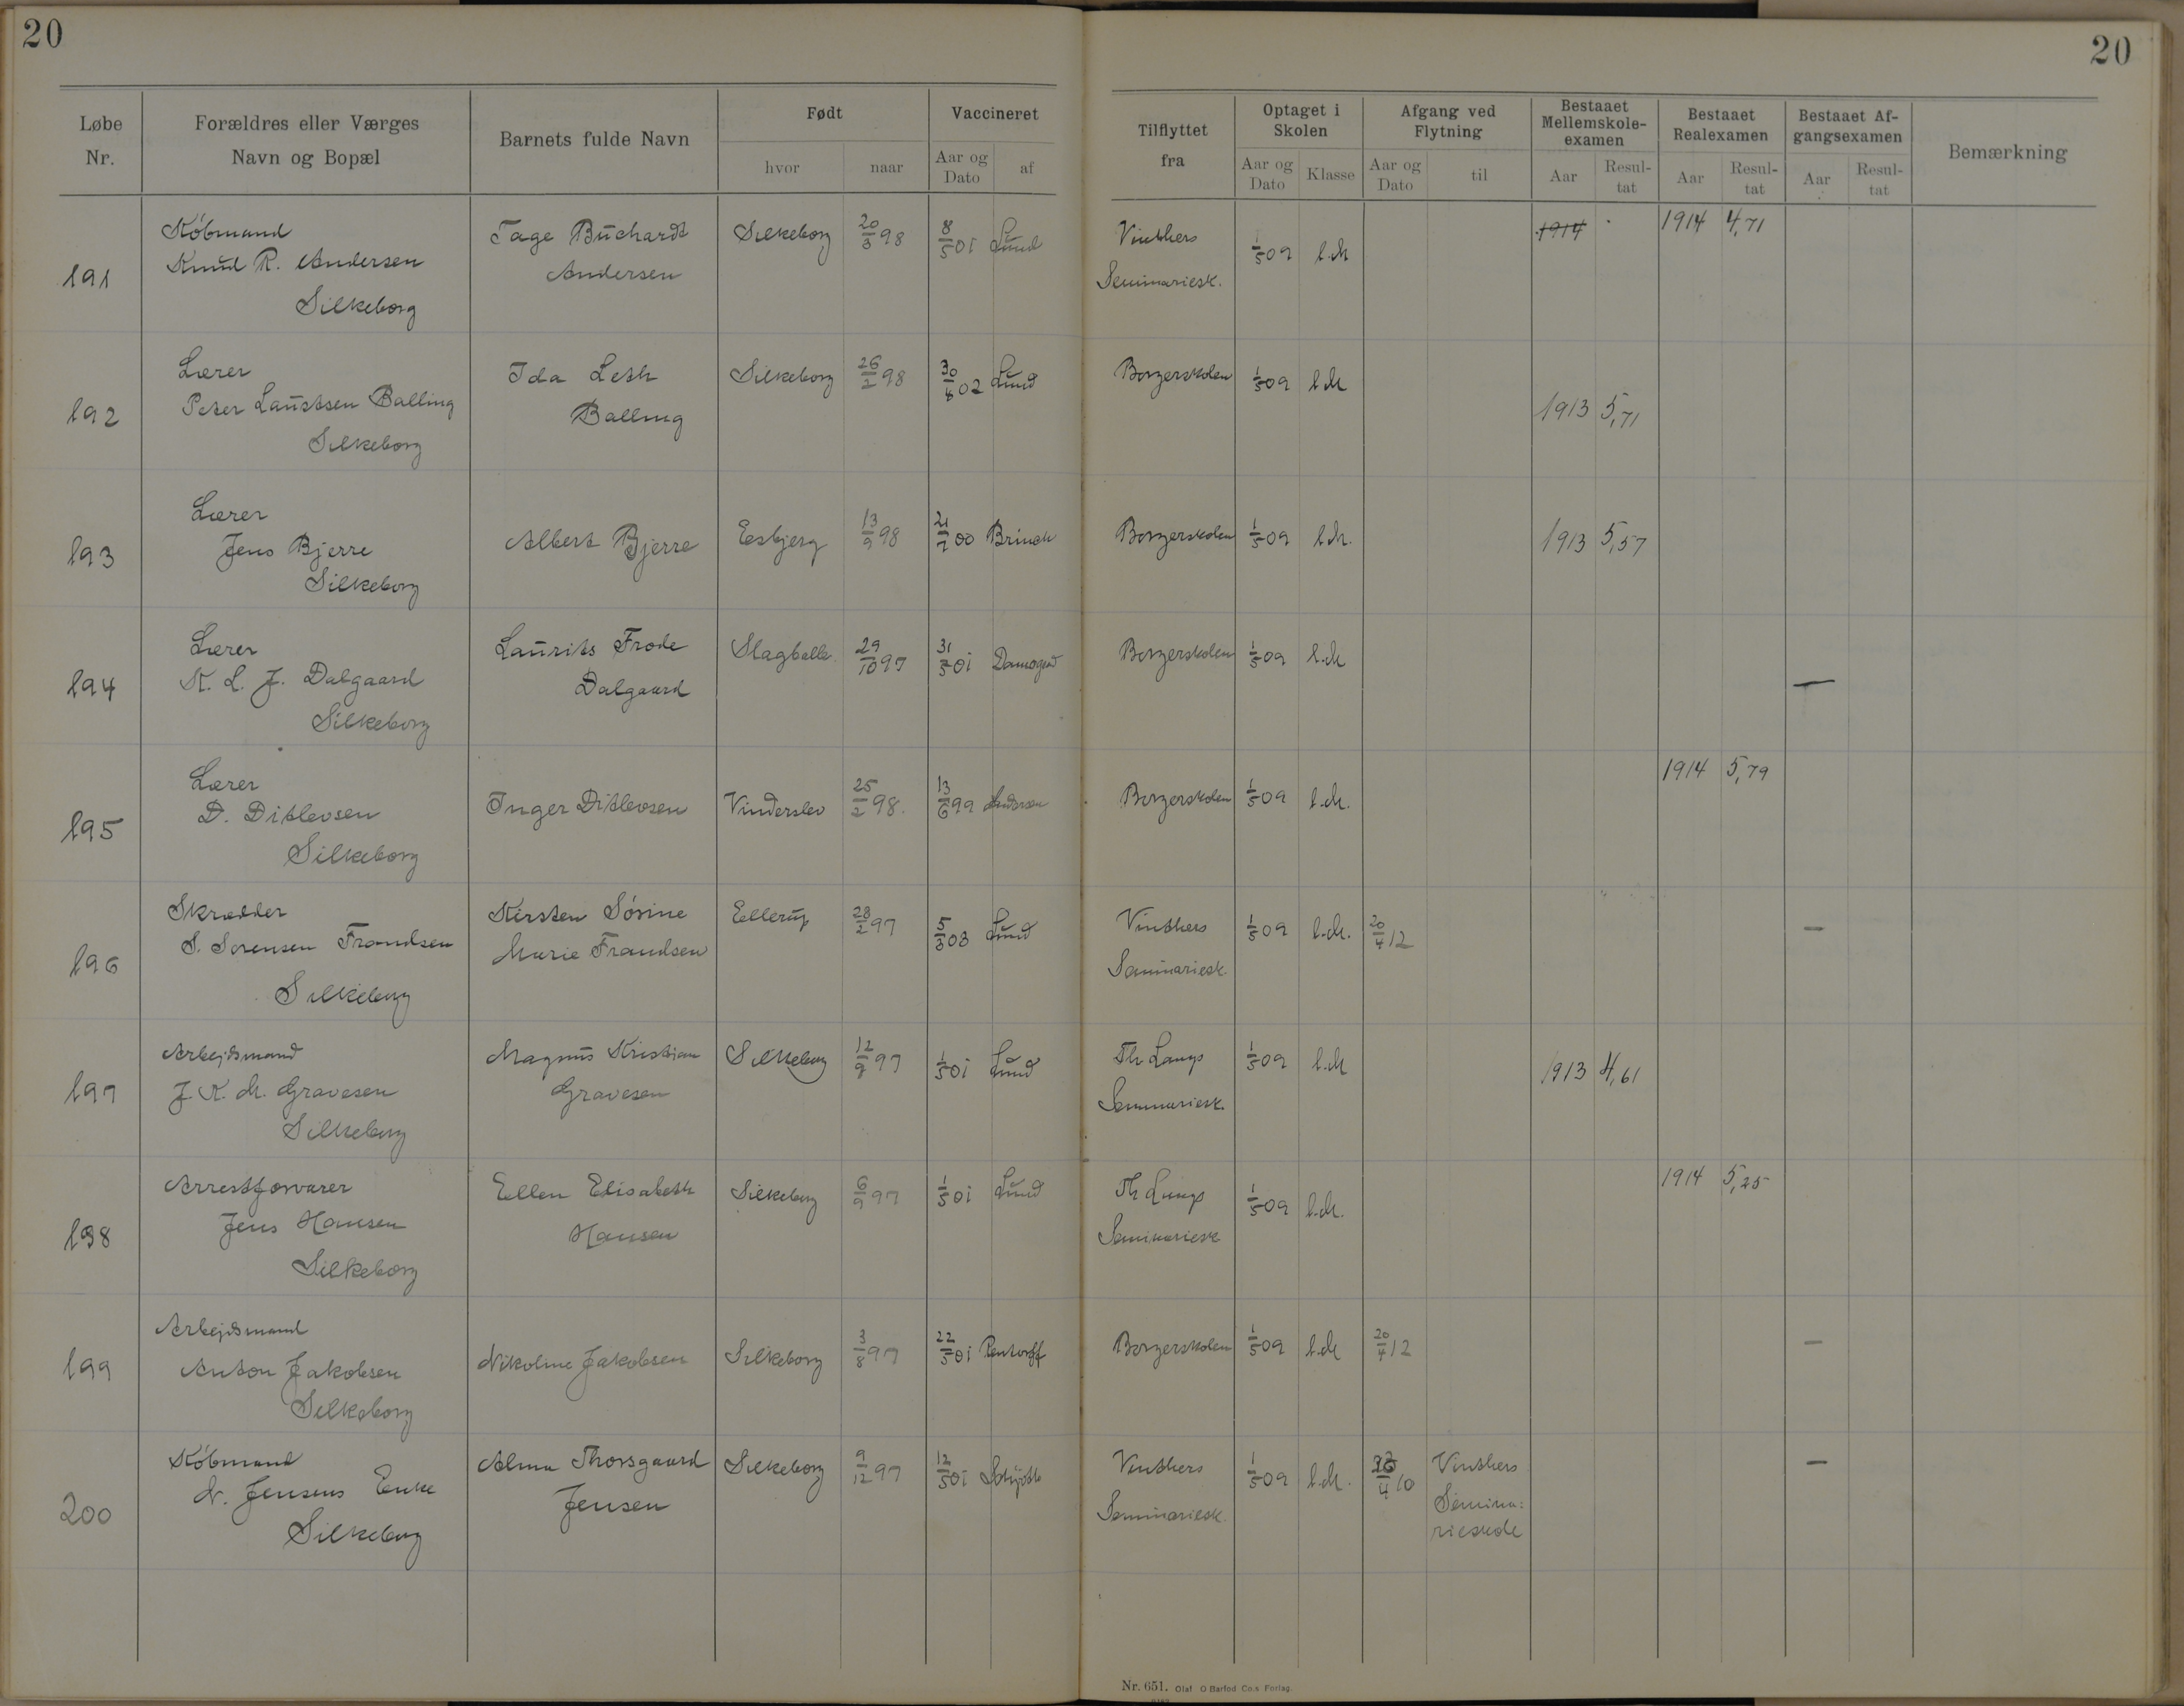 20
20
Løbe Nr.
Forældres eller Værges Navn og Bopæl
Barnets fulde Navn
Født
hvor
naar
Vaccineret
Aar og Dato
af
Tilflyttet fra
Optaget i Skolen
Aar og Dato
Klasse
Afgang ved Flytning
Aar og Dato
til
Bestaaet Mellemskole-examen
Aar
Resul-tat
Bestaaet Realexamen
Aar
Resul-tat
Bestaaet Af-gangsexamen
Aar
Resul-tat
Bemærkning
191 Købmand Knud R. Andersen Silkeborg Tage Buchardt Andersen Silkeborg 20/3 98 8/5 01 Lund Vinthers Seminariesk. 1/5 09 1.M 1914 1914 4,71
192 Lærer Peter Laustsen Balling Silkeborg Ida Leth Balling Silkeborg 26/2 98 30/8 02 Lund Borgerskolen 1/5 09 1.M 1913 5,71
193 Lærer Jens Bjerre Silkeborg Albert Bjerre Esbjerg 13/9 98 21/7 00 Brinch Borgerskolen 1/5 09 1.M. 1913 5,57
194 Lærer K. L. J. Dalgaard Silkeborg Laurits Frode Dalgaard Slagballe 29/10 97 31/5 01 Borgerskolen 1/5 09 1.M —
195 Lærer D. Ditlevsen Silkeborg Inger Ditlevsen Vinderslev 25/2 98. 13/6 99 Andersen Borgerskolen 1/5 09 1.M. 1914 5,79
196 Skrædder S. Sørensen Frandsen Silkeborg Kirsten Sørine Marie Frandsen Ellerup 28/2 97 5/5 03 Lund Vinthers Seminariesk. 1/5 09 1.M. 20/4 12 —
197 Arbejdsmand J. K. M. Gravesen Silkeborg Magnus Kristian Gravesen Silkeborg 12/9 97 1/5 01 Lund Th Langs Seminariesk. 1/5 09 1.M 1913 4,61
198 Arrestforvarer Jens Hansen Silkeborg Ellen Elisabeth Hansen Silkeborg 6/9 97 1/5 01 Lund Th Langs Seminariesk 1/5 09 1.M. 1914 5,25
199 Arbejdsmand Anton Jakobsen Silkeborg Nikoline Jakobsen Silkeborg 3/8 97 22/5 01 Pentorff Borgerskolen 1/5 09 1.M 20/4 12 —
200 Købmand N. Jensens Enke Silkeborg Alma Thorsgaard Jensen Silkeborg 9/12 97 12/5 01 Schjøtt Vinthers Seminariesk. 1/5 09 1.M. /4 10 Vinthers Semina: rieskole —
Nr. 651. Olaf O Barfod Co.s Forlag.